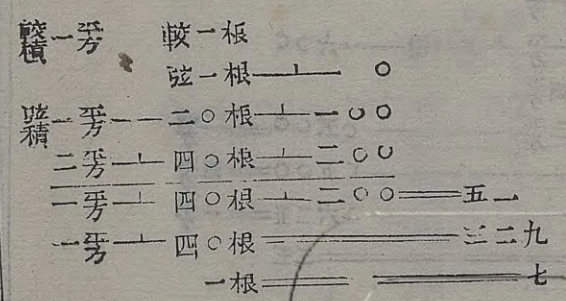 較積一平方 較一根
弦一根⊥一〇
弦積一平方一二〇根⊥一〇〇
二平方⊥四〇根⊥二〇〇
一平方⊥四〇根⊥二〇〇＝五一
一平方⊥四〇根＝三二九
一根＝七